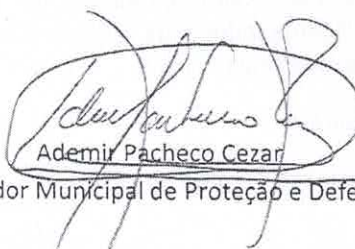 Ademir Pacheco Cezar
dor Municipal de Proteção e Defe